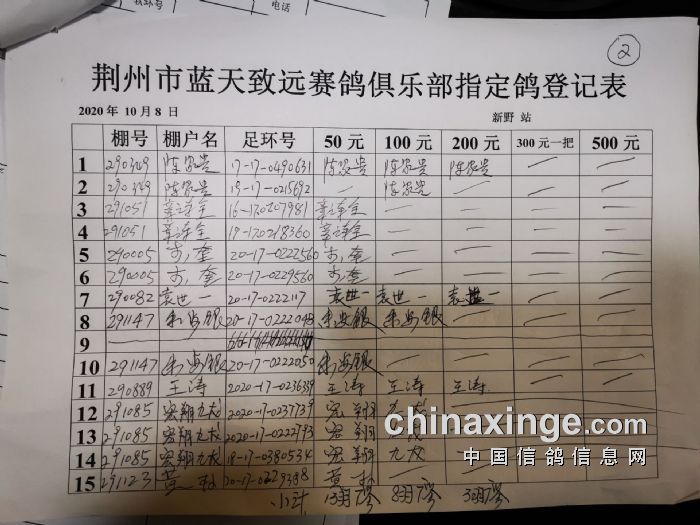 软环号
电话
②
荆州市蓝天致远赛鸽俱乐部指定鸽登记表
2020年 10月 8日 新野 站
棚号 棚户名 足环号 50元 100元 200元 300元一把 500元
1 290329 陈家贵 17-17-0490631 陈家贵 陈家贵 陈家贵 — —
2 290329 陈家贵 19-17-0215692 — 陈家贵 — — —
3 291051 16-170207981 — — — —
4 291051 19-170218360 — — — —
5 290005 20-17-0222560 — — — —
6 290005 20-17-0229560 — — — —
7 290082 袁世一 20-17-0222117 袁世一 袁世一 袁世一 — —
8 291147 朱安银 20-17-0222048 朱安银 朱安银 — — —
9
10 291147 朱安银 20-17-0222050 朱安银 — — — —
11 290889 王涛 2020-17-0236339 王涛 王涛 王涛 — —
12 291085 宏翔九龙 2020-17-0237739 宏翔 九龙
13 291085 宏翔九龙 2020-17-0222793 宏翔
14 291085 宏翔九龙 18-17-0380534 宏翔 九龙
15 291123 20-17-0229388
小计 13羽 8羽 3羽
chinaxinge.com
中国信鸽信息网